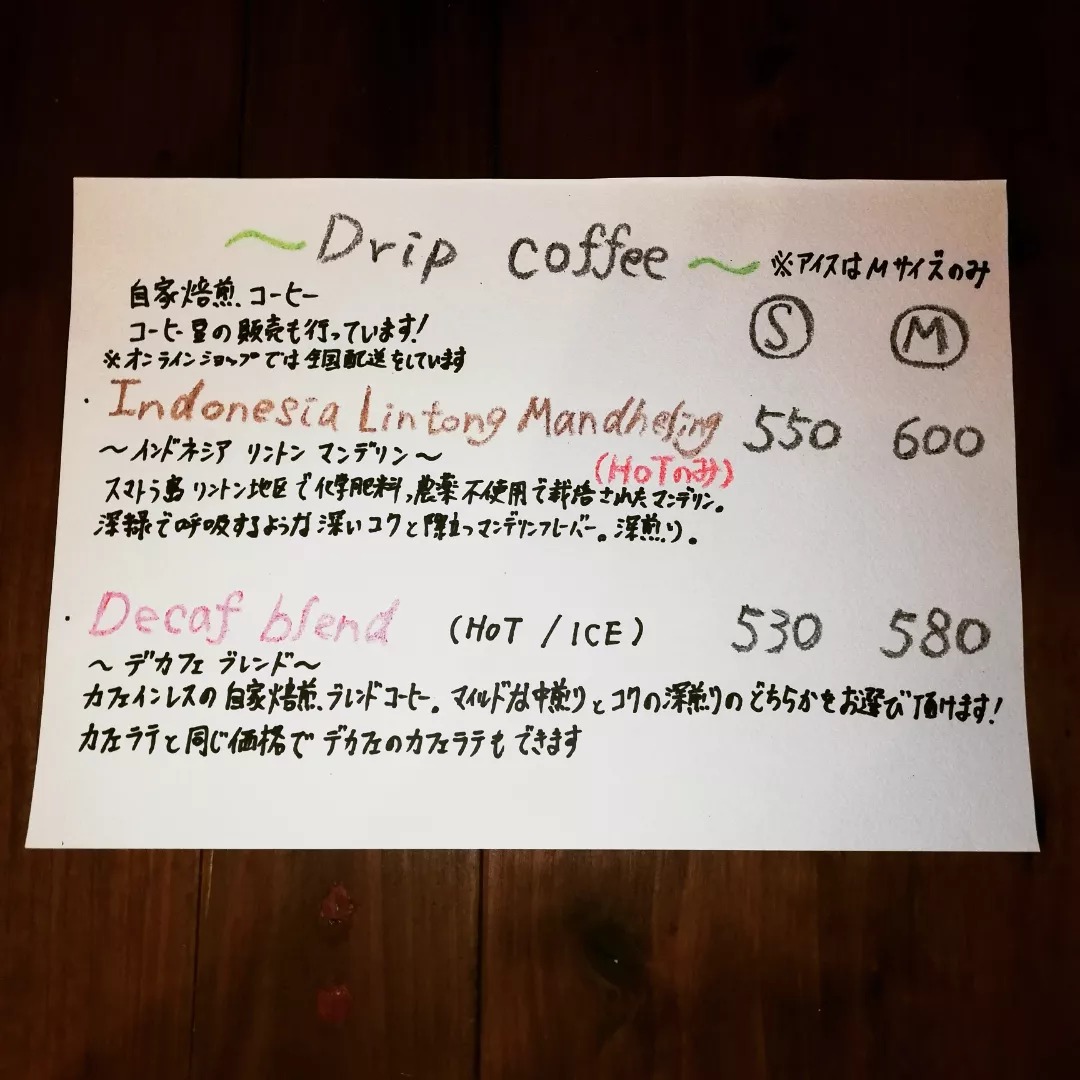 ～Drip coffee～ ※アイスはMサイズのみ
自家焙煎コーヒー
コーヒー豆の販売も行っています！
※オンラインショップでは全国配送をしています
S M
・Indonesia Lintong Mandheling 550 600
～インドネシア リントン マンデリン～
(HOTのみ)
スマトラ島リントン地区で化学肥料、農薬不使用で栽培されたマンデリン。
深緑で呼吸するような深いコクと際立つマンデリンフレーバー。深煎り。
・Decaf blend (HOT / ICE) 530 580
～デカフェ ブレンド～
カフェインレスの自家焙煎ブレンドコーヒー。マイルドな中煎りとコクの深煎りのどちらかをお選び頂けます！
カフェラテと同じ価格でデカフェのカフェラテもできます